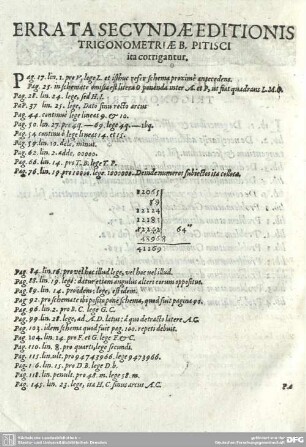 ERRATA SECVNDÆ EDITIONIS
TRIGONOMETRIÆ B. PITISCI
ita corrigantur.
Pag. 17. lin. 1. pro V, lege L. et isthuc refer schema proximè antecedens.
Pag. 25. in schemate omissa est litera O ponenda inter A. et P, ut fiat quadrans L.M.O.
Pag. 28. lin. 24. lege, sed H.I.
Pag. 37. lin. 25. lege, Dato sinu recto arcus
Pag. 44. continuè lege lineas 9. & 10.
Pag. 50. lin. 27. pro 49.— 69. lege 49.—
Pag. 54 continuè lege lineas 14. et 15.
Pag. 59. lin. 19. dele, minut.
Pag. 62. lin. 2. adde, 10000.
Pag. 66. lin. 14. pro T.B. lege T.P.
Pag. 76. lin. 19. pro lege, 1000000. Deinde numeros subiectos ita colloca.
12065
89
12124
12183
64"
43968
41169
Pag. 84. lin. 16. pro vel hac illud lege, vel hac vel illud.
Pag. 88. lin. 19. lege: datur etiam angulus alteri eorum oppositus.
Pag. 89. lin. 14. pro idem: lege, est idem.
Pag. 92. pro schemate ibi posito pone schema, quod fuit pagina 91.
Pag. 96. lin. 2. pro B.C. lege G.C.
Pag. 99. lin. 28. lege, ad A.D. latus: à quo detracto latere A.G.
Pag. 103. idem schema quod fuit pag. 100. repeti debuit.
Pag. 104. lin. 14. pro F. et G. lege F. & C.
Pag. 110. lin. 8. pro quarti, lege secundi.
Pag. 115. lin. ult. pro 94743966. lege 9473966.
Pag. 116. lin. 15. pro D.B. lege D.b.
Pag. 118. lin. penult. pro 48 m. lege 38. m.
Pag. 145. lin. 23. lege, ita H.C. sinus arcus A.C.